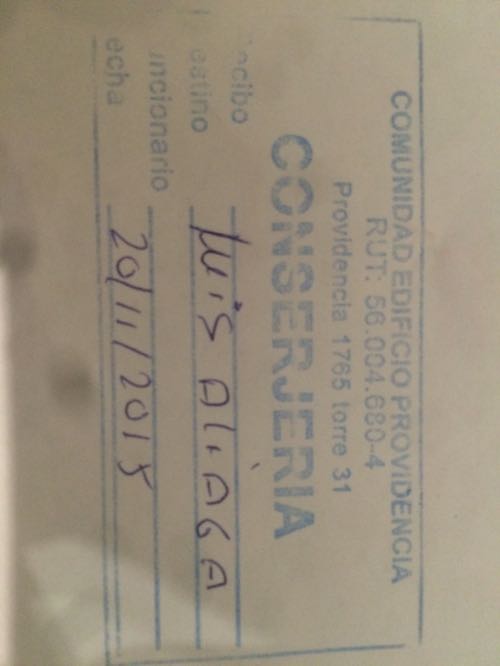 COMUNIDAD EDIFICIO PROVIDENCIA
RUT: 56.004.680-4
Providencia 1765 torre 31
CONSERJERIA
ecibo
estino LUiS ALiAGA
uncionario
echa 20/11/2015